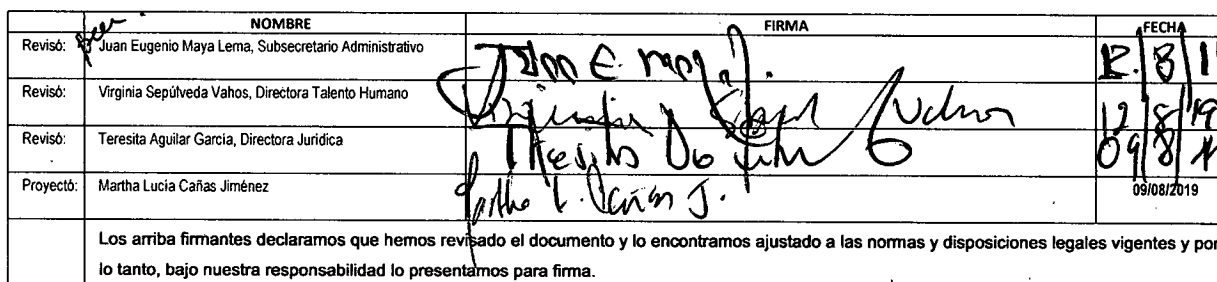 NOMBRE FIRMA FECHA
Revisó: Juan Eugenio Maya Lema, Subsecretario Administrativo Juan E. Maya L. 12 8 1
Revisó: Virginia Sepúlveda Vahos, Directora Talento Humano Virginia Vahos 12 8 19
Revisó: Teresita Aguilar Garcia, Directora Jurídica Teresita 09 8
Proyectó: Martha Lucía Cañas Jiménez Martha L. Cañas J. 09/08/2019
Los arriba firmantes declaramos que hemos revisado el documento y lo encontramos ajustado a las normas y disposiciones legales vigentes y por
lo tanto, bajo nuestra responsabilidad lo presentamos para firma.